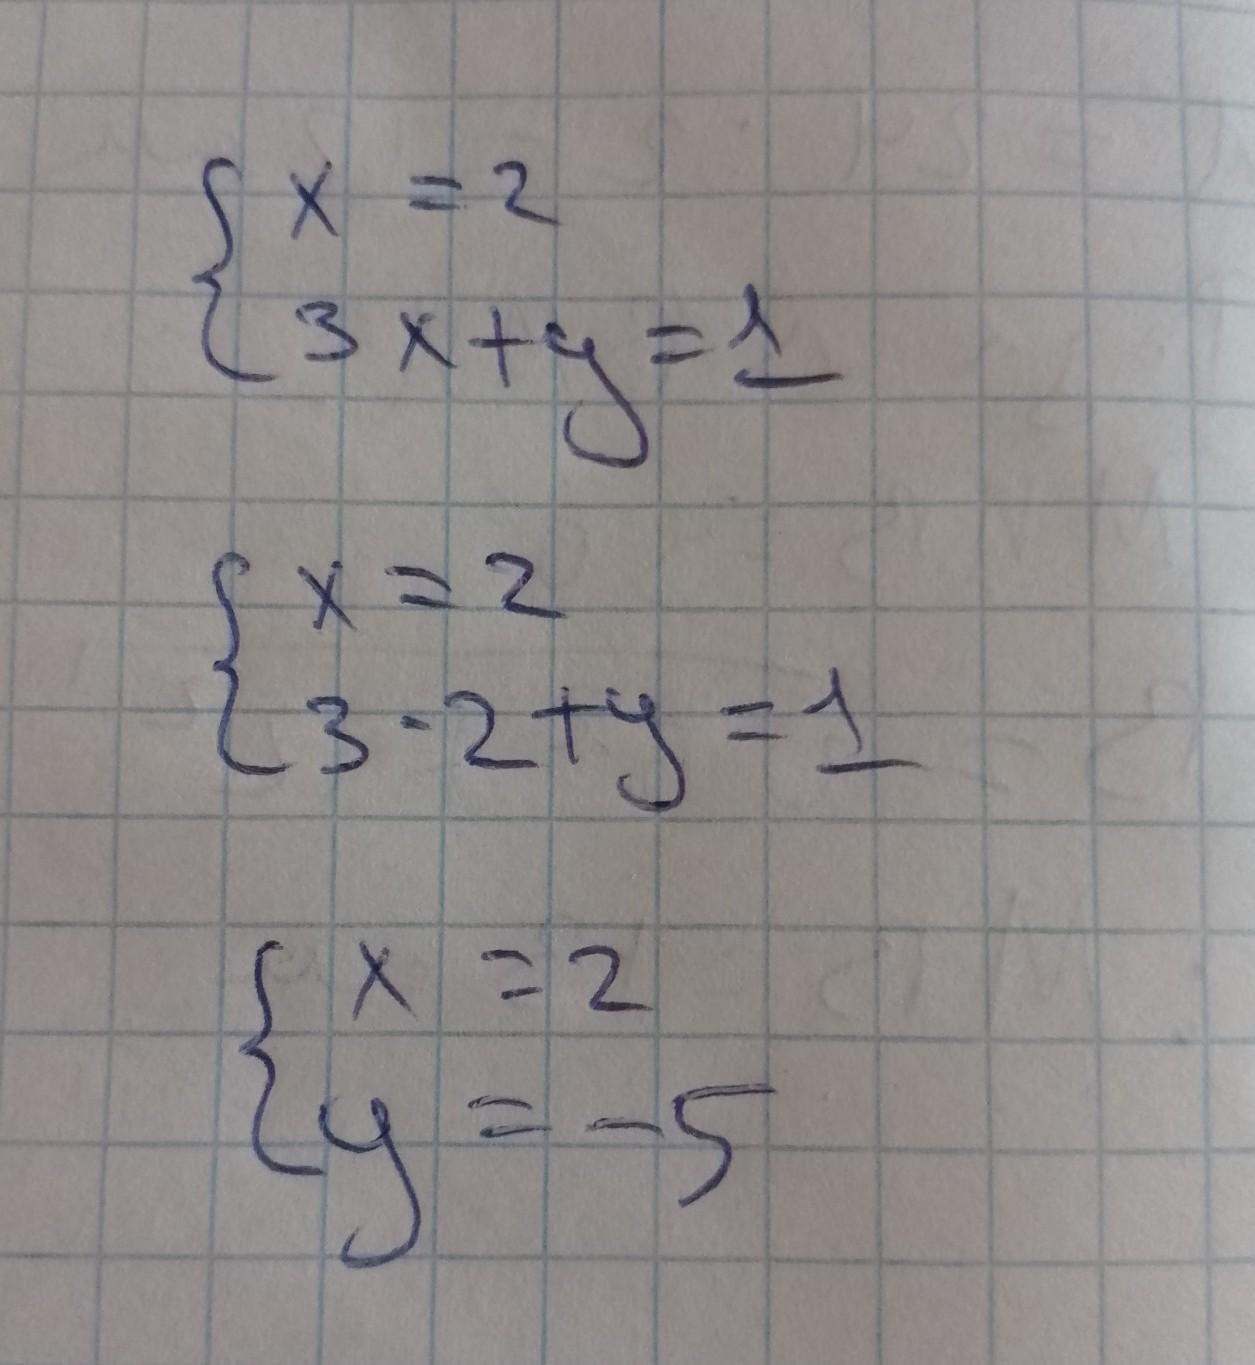 { x = 2
3x+y=1
{ x = 2
3·2+y=1
{ x = 2
y = -5